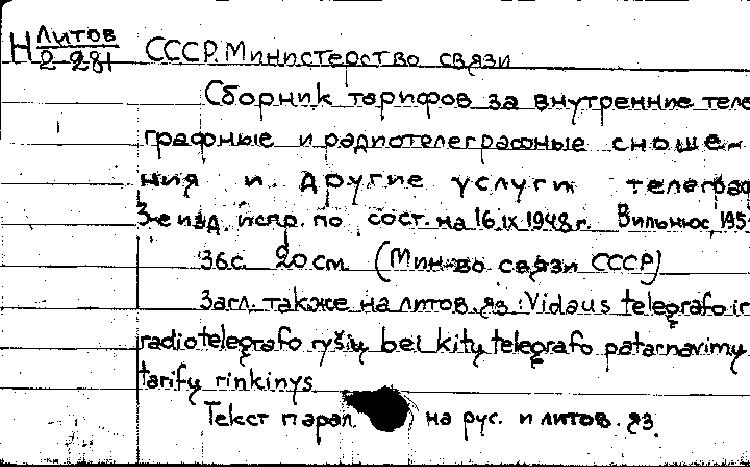 Н Литов
2-281
СССР. Министерство связи
Сборник тарифов за внутренние теле
графные и радиотелеграфные сноше-
ния и другие услуги телеграф
3-е изд. испр. по сост. на 16.IX 1948 г. Вильнюс, 195
36 с. 20 см. (Мин-во связи СССР)
Загл. также на литов. яз.: Vidaus telegrafo ir
radiotelegrafo ryšių bei kitų telegrafo patarnavimų
tarifų rinkinys.
Текст парал. на рус. и литов. яз.